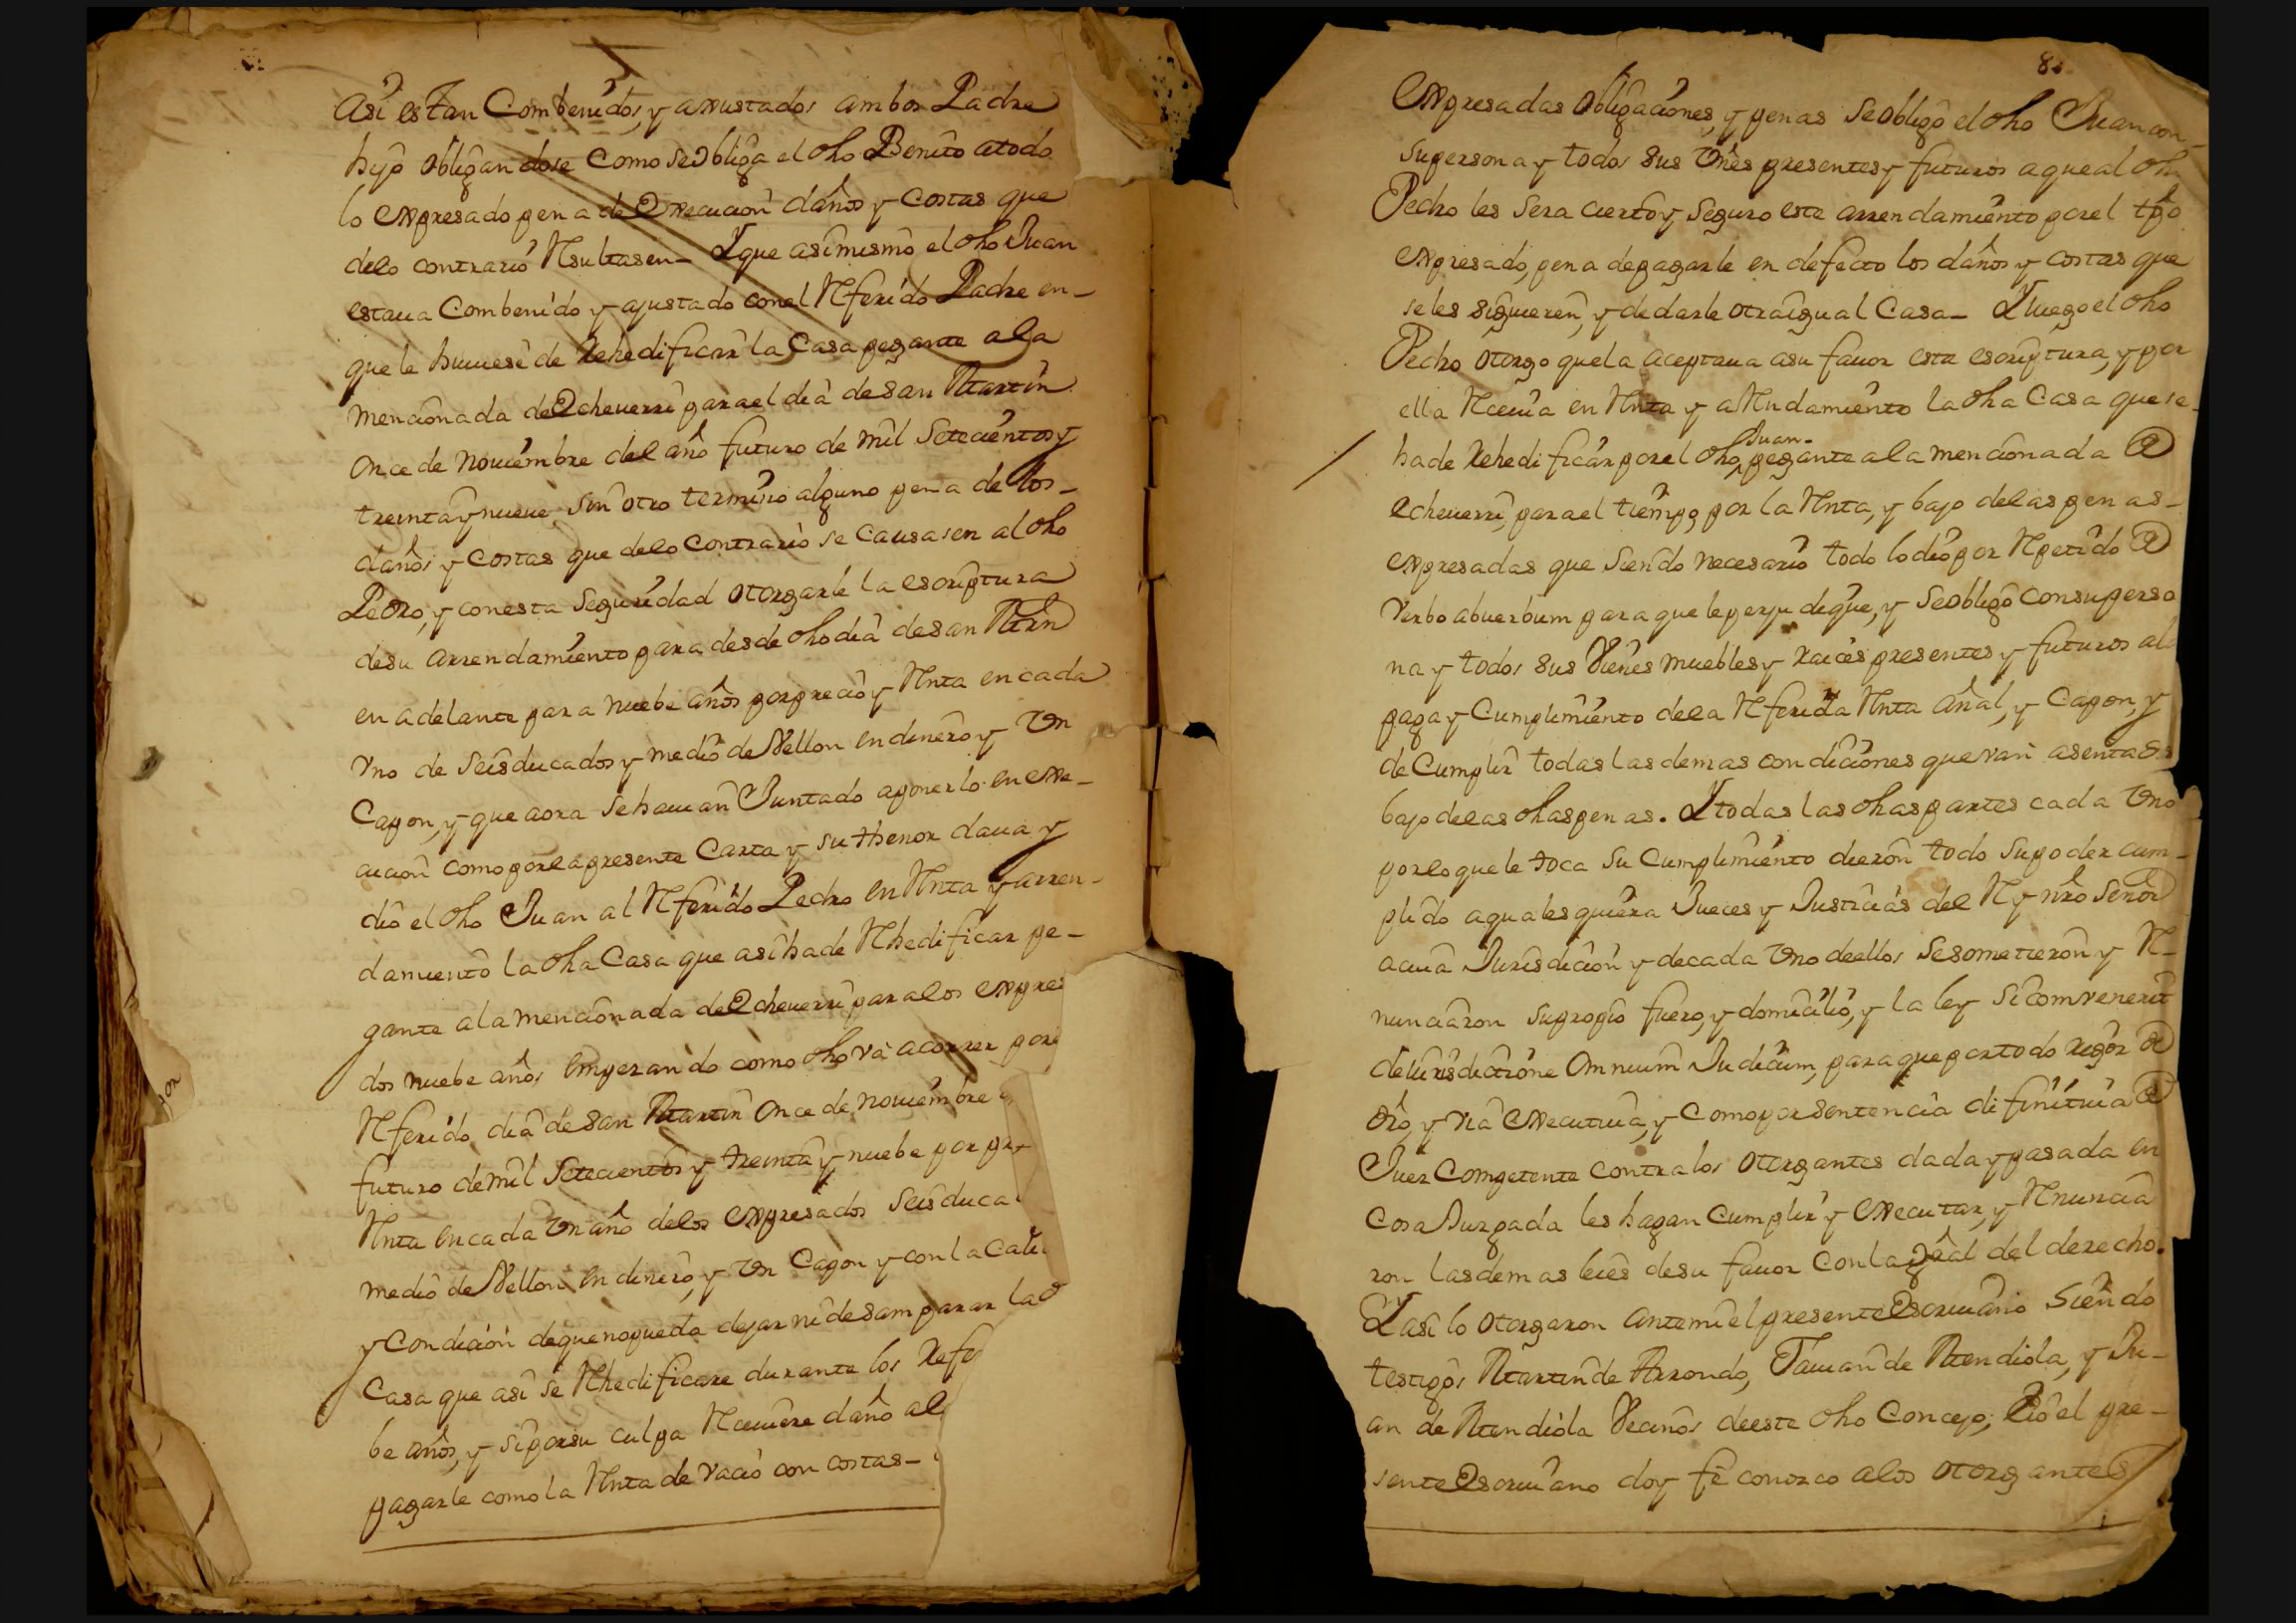 Asi estan Combenidos, y axustados ambos Padre
hijo obligandose como se obliga el dho Benito a todo
lo expresado pena de execucion daños y costas que
delo contrario Resultasen_ Y que asimismo el dho Juan
estaua Combenido y ajustado con el Referido Padre en_
que le huuiese de Rehedificar la Casa pegante ala
mencionada de Echeuerri para el dia de san Martin
Once de Nouiembre del año futuro de mil Setecientos y
treinta y nueue sin otro termino alguno pena de los_
daños y costas que delo Contrario se Causasen al dho
Pedro, y con esta Seguridad otorgarle la escriptura
de su arrendamiento para desde dho dia de san Mrn
en adelante para nuebe años por precio y Renta en cada
Vno de Seis ducados y medio de Vellon en dinero y Vn
Capon, y que aora se hauian Juntado a ponerlo en exe_
cucion como por la presente Carta y su thenor daua y
dio el dho Juan al Referido Pedro en Renta y arren_
damiento la dha Casa que asi ha de Rhedificar pe_
gante ala mencionada de Echeuerri para los expres
dos nuebe años Empezando como dho va a correr por
Referido dia de san Martin Once de Nouiembre
futuro de mil Setecientos y treinta y nuebe por pr
Renta en cada Vn año delos expresados Seis duca
medio de Vellon en dinero, y Vn Capon y con la Cali
y Condicion de que no pueda dejar ni desamparar la
Casa que asi se Rhedificare durante los Refe
be años, y si por su culpa Recuiere daño al
pagarle como la Renta de Vacio con costas_
8
expresadas obligaciones, y penas se obligo el dho Juan con_
su persona y todos sus Vnes presentes y futuros a que al dh
Pedro les sera cierto y seguro este arrendamiento por el tpo
expresado, pena de pagarle en defecto los daños y costas que
se les siguieren, y de darle otra igual Casa_ Y luego el dho
Pedro otorgo que la aceptaua a su fauor esta escriptura, y por
ella Receuia en Renta y aRendamiento la dha Casa que se_
Juan.
ha de Rehedificar por el dho, pegante ala mencionada de
Echeuerri, para el tiempo, por la Renta, y bajo delas penas_
expresadas que siendo necesario todo lo dio por Repetido de
Verbo abuerbum para que le perjudique, y se obligo con su perso
na y todos sus Vienes muebles y raices presentes y futuros al
paga y Cumplimiento dela Referida Renta añal, y Capon, y
de Cumplir todas las demas condiciones que van asentadas
bajo delas dhas penas. Y todas las dhas partes cada Vno
por lo que le toca su Cumplimiento dieron todo su poder cum_
plido a qualesquiera Jueces y Justicias del Rey nro Señor
a cuia Jurisdicion y de cada Vno de ellos se sometieron y Re_
nunciaron su propio fuero, y domicilio, y la ley Sicomvenerit
de iurisdictione Omnium Judicum, para que por todo rigor de
dro, y via executiua, y como por sentencia difinitiuia de
Juez Competente contra los otorgantes dada y pasada en
cosa Juzgada les hagan Cumplir y executar, y Renuncia
ron las demas leies de su fauor con la gral del derecho.
Y asi lo otorgaron ante mi el presente Escriuano siendo
testigos Martin de Arrondo, de Mendiola, y Ju_
an de Mendiola Vecinos deeste dho Concejo; el pre_
sente Escriuano doy fe conozco alos otorgantes